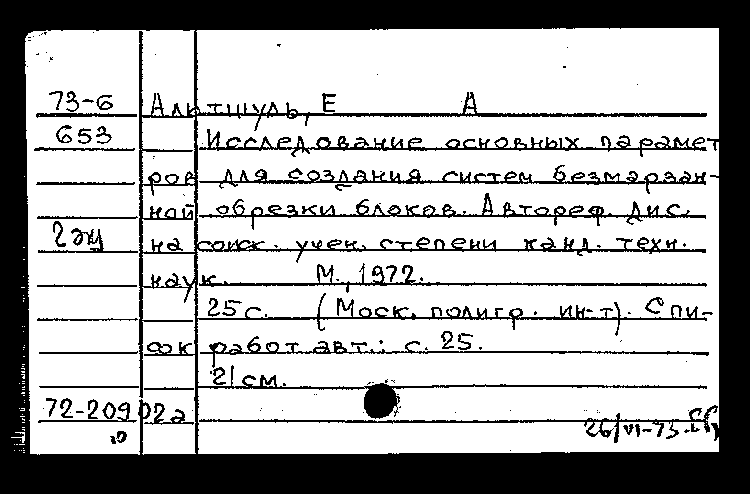 73-6 Альтшуль, Е А
653 Исследование основных парамет
ров для создания систем безмарзан-
ной обрезки блоков. Автореф. дис.
2 эк на соиск. учен. степени канд. техн.
наук. М., 1972.
25 с. (Моск. полигр. ин-т). Спи-
сок работ авт.: с. 25.
21 см.
72-20902а
26/VI-73